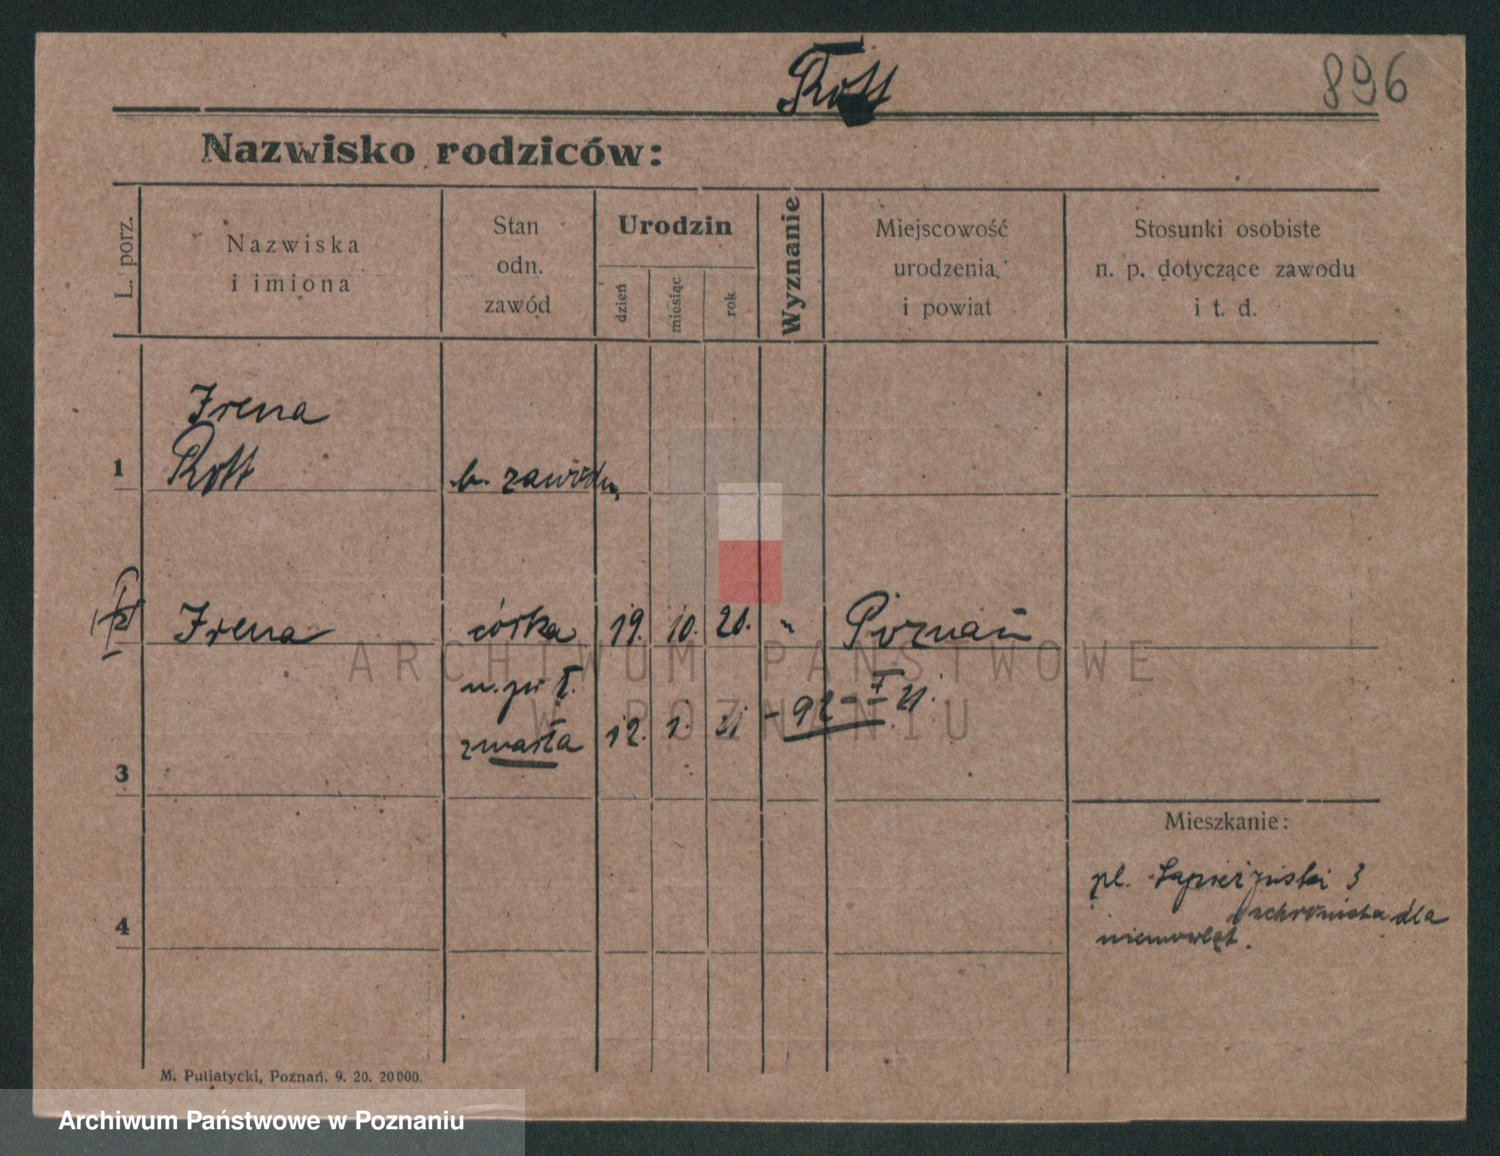 Rott
896
Nazwisko rodziców:
L. porz.
Nazwiska
i imiona
Stan
odn.
zawód
Urodzin
dzień
miesiąc
rok
Wyznanie
Miejscowość
urodzenia
i powiat
Stosunki osobiste
n. p. dotyczące zawodu
i t. d.
Irena
1 Rott b. zawodu
2 Irena córka 19. 10. 20. " Poznań
zmarła 12. 1. 21
3
Mieszkanie:
pl. Sapieżyński 3
ochronka dla
niemowląt.
4
M. Putiatycki, Poznań. 9. 20. 20000.
ARCHIWUM PAŃSTWOWE
W POZNANIU
Archiwum Państwowe w Poznaniu